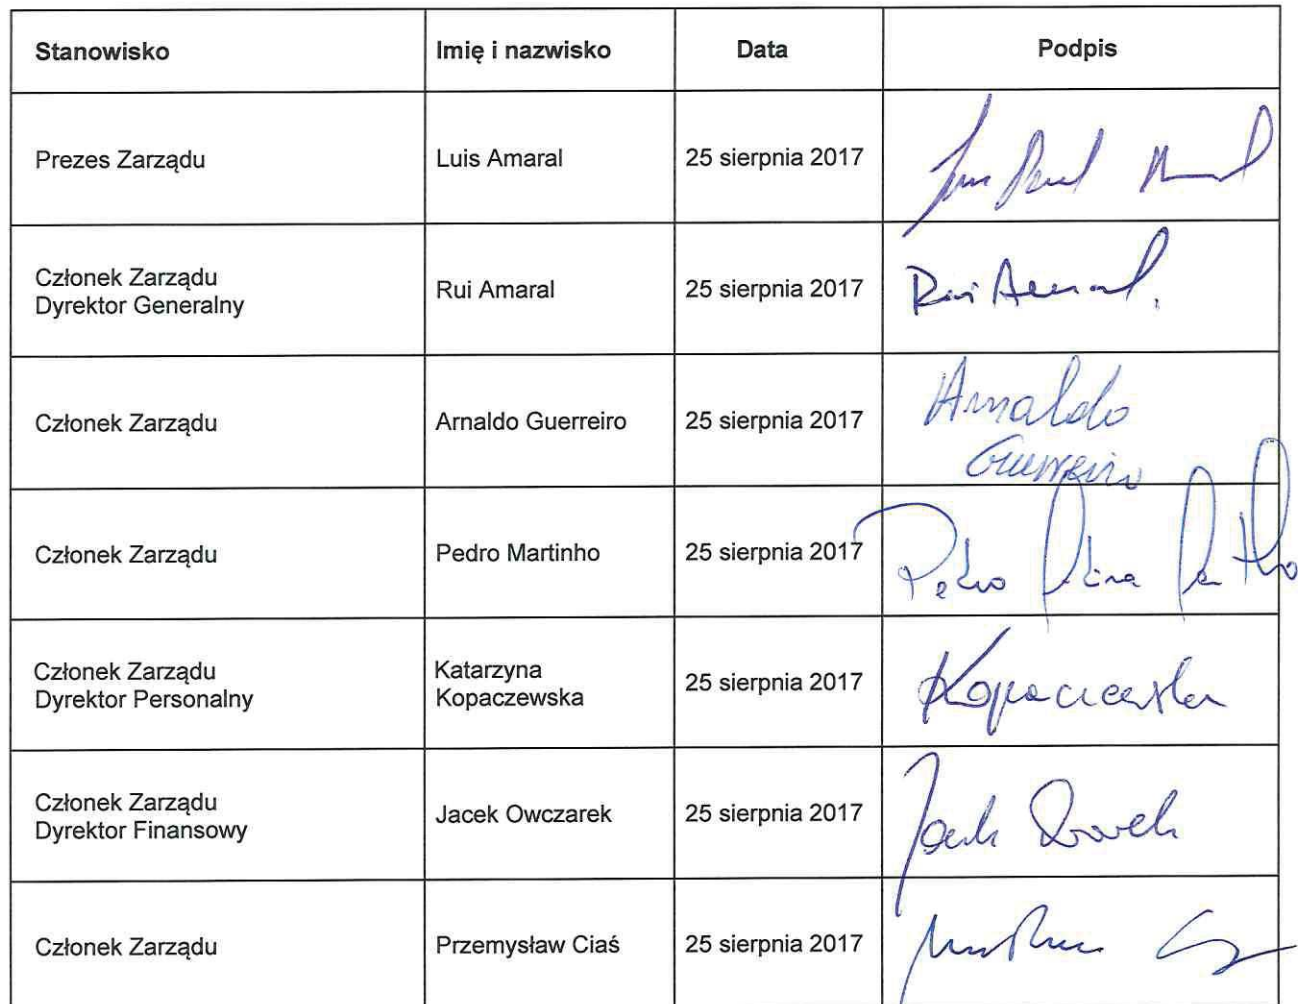 Stanowisko Imię i nazwisko Data Podpis
Prezes Zarządu Luis Amaral 25 sierpnia 2017
Członek Zarządu
Dyrektor Generalny Rui Amaral 25 sierpnia 2017 Rui Amaral.
Członek Zarządu Arnaldo Guerreiro 25 sierpnia 2017 Arnaldo
Guerreiro
Członek Zarządu Pedro Martinho 25 sierpnia 2017 Pedro
Członek Zarządu
Dyrektor Personalny Katarzyna
Kopaczewska 25 sierpnia 2017 Kopaczewska
Członek Zarządu
Dyrektor Finansowy Jacek Owczarek 25 sierpnia 2017
Członek Zarządu Przemysław Ciaś 25 sierpnia 2017